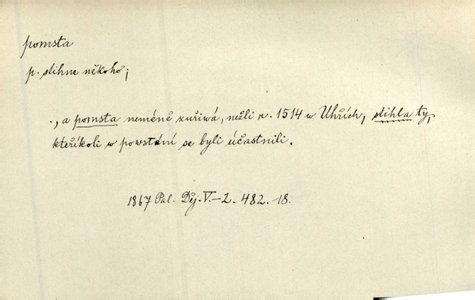 pomsta
p. stihne někoho;
., a pomsta neméně zuřivá, nežli r. 1514 w Uhřích, stihla ty,
kteříkoli w powstání se byli účastnili.
1867 Pal. Děj. V-2. 482. 18.